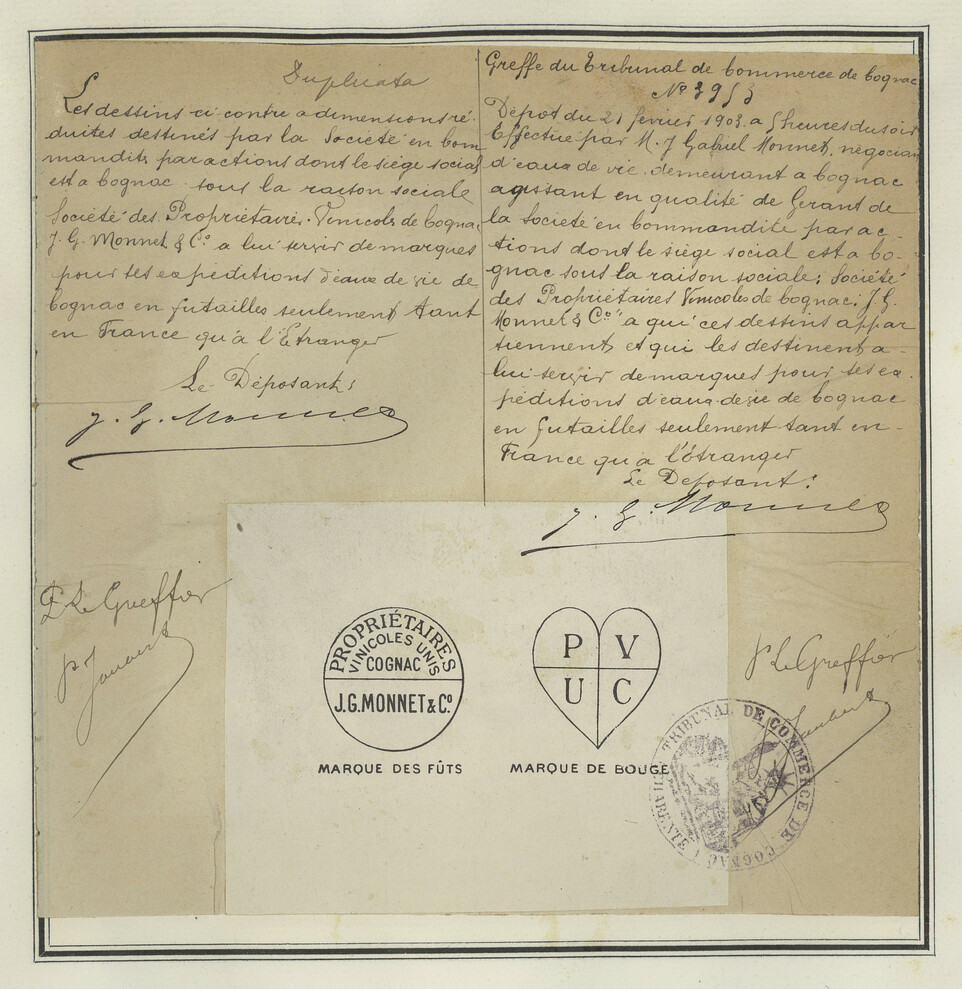 Duplicata
Les dessins ci contre a dimensions ré-
duites destinés par la Société en bom
mandite par actions dont le siège social
est a bognac sous la raison sociale
Société des Propriétaires Vinicoles de bognac
J. G. Monnet & Co a lui servir de marques
pour ses expéditions d'eaux de vie de
bognac en futailles seulement tant
en France qu'à l'Etranger
Le Déposant:
J. G. Monnet
P Le Greffier
Greffe du Tribunal de bommerce de bognac
No 3953
Dépôt du 21 février 1903 a 5 heures du soir
Effectué par M. J Gabriel Monnet, négociant
d'eaux de vie demeurant a bognac
agissant en qualité de Gérant de
la Société en bommandite par ac-
tions dont le siège social est a bo-
gnac sous la raison sociale: Société
des Propriétaires Vinicoles de bognac; J. G.
Monnet & Co a qui ces dessins appar
tiennent et qui les destinent a-
lui servir de marques pour ses ex-
péditions d'eaux-de-vie de bognac
en futailles seulement tant en-
France qu'a l'Étranger
Le Déposant:
J. G. Monnet
P Le Greffier
PROPRIÉTAIRES
VINICOLES UNIS
COGNAC
J.G.MONNET & Co
MARQUE DES FÛTS
P V
U C
MARQUE DE BOUGE
TRIBUNAL DE COMMERCE DE COGNAC (CHARENTE)